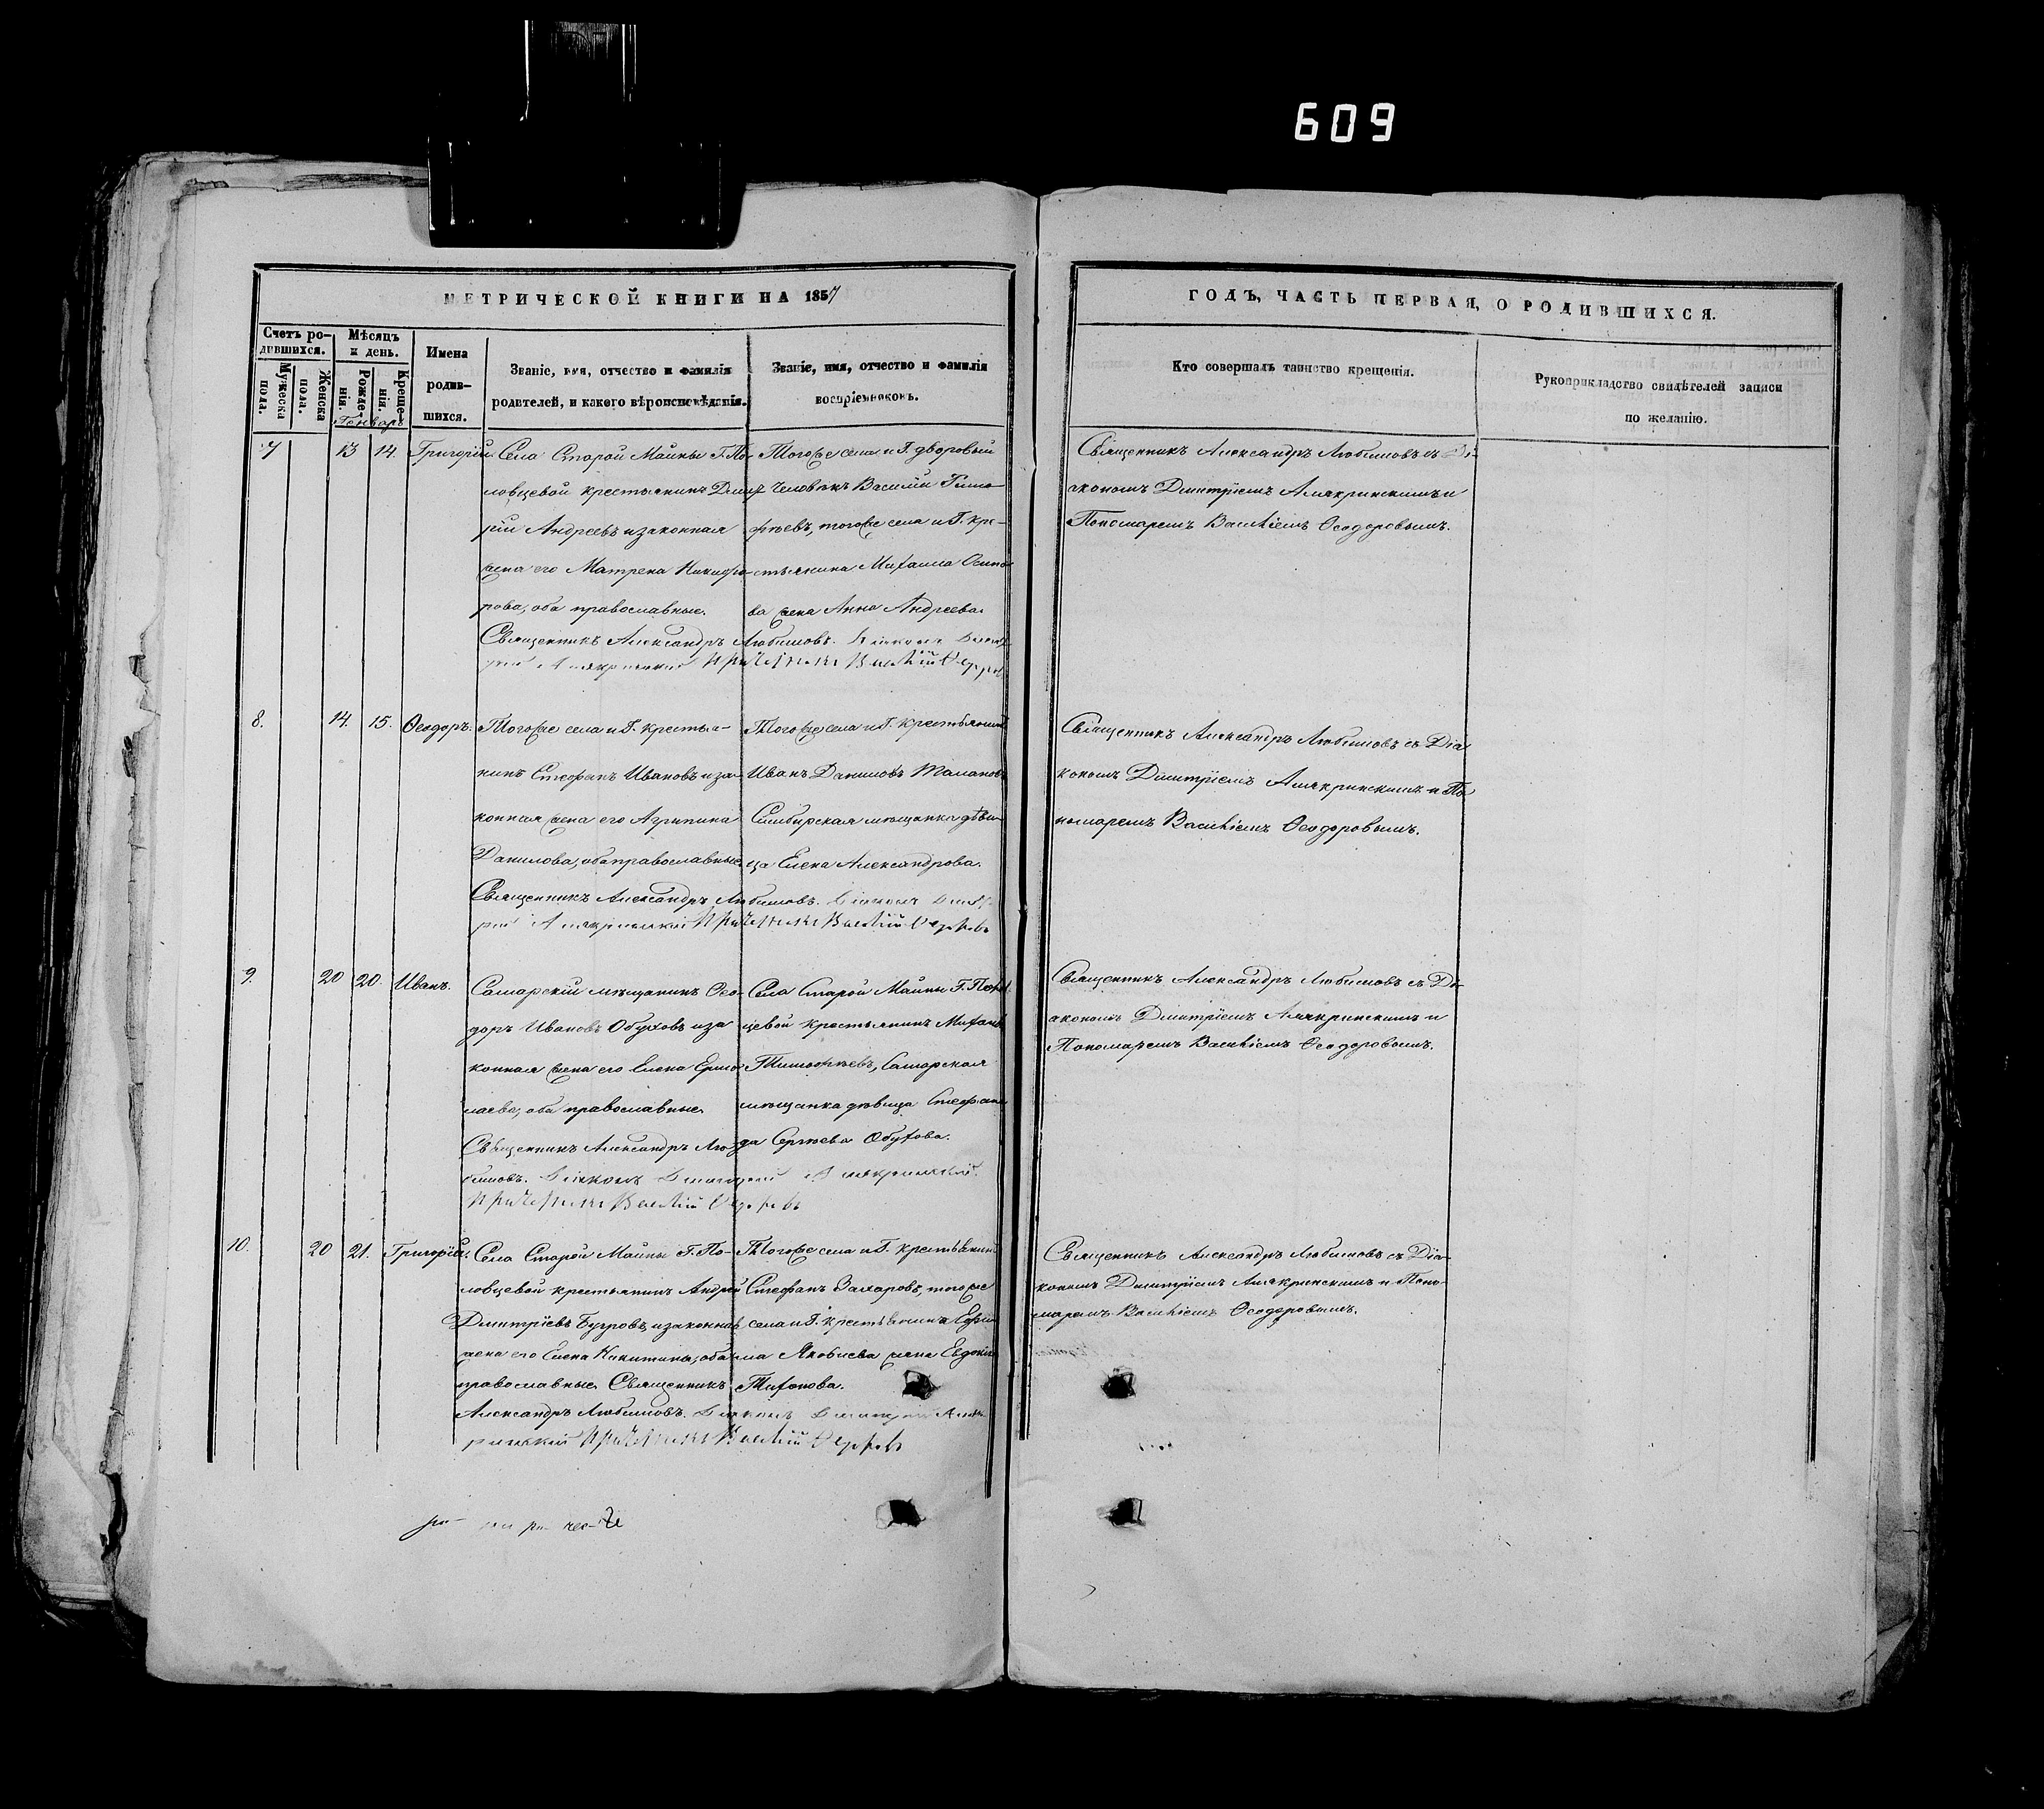 609
МЕТРИЧЕСКОЙ КНИГИ НА 1857
ГОДЪ, ЧАСТЬ ПЕРВАЯ, О РОДИВШИХСЯ.
Счетъ ро-
дившихся.
Мужеска
пола.
Женска
пола.
Мѣсяцъ
и день.
Рожде-
нія.
Креще-
нія.
Генварь
Имена
родив-
шихся.
Званіе, имя, отчество и фамилія
родителей, и какого вѣроисповѣданія.
Званіе, имя, отчество и фамилія
воспріемниковъ.
Кто совершалъ таинство крещенія.
Рукоприкладство свидѣтелей записи
по желанію.
7
13
14.
Григорій.
Села Старой Майны Г. По-
ловцевой крестьянинъ Дмит-
рій Андреевъ и законная
жена его Матрена Никифо-
рова, оба православные.
Священникъ Александръ Любимовъ. Діаконъ Дмит-
рій Алякринскій Причетникъ Василій
Тогоже села и Г. дворовый
человѣкъ Василій Тимо-
фѣевъ, тогоже села и Г. кре-
стьянина Михаила Осипо-
ва жена Анна Андреева.
Священникъ Александръ Любимовъ съ Ді-
акономъ Дмитріемъ Алякринскимъ и
Пономаремъ Василіемъ Ѳеодоровымъ.
8.
14.
15.
Ѳеодоръ.
Тогоже села и Г. крестья-
нинъ Стефанъ Ивановъ и за-
конная жена его Агрипина
Данилова, оба православные.
Священникъ Александръ Любимовъ. Діаконъ Дмит-
рій Алякринскій Причетникъ Василій
Тогоже села и Г. крестьянинъ
Иванъ Даниловъ
Симбирская мѣщанка дѣви-
ца Елена Александрова.
Священникъ Александръ Любимовъ съ Діа-
кономъ Дмитріемъ Алякринскимъ и По-
номаремъ Василіемъ Ѳеодоровымъ.
9.
20
20.
Иванъ.
Самарскій мѣщанинъ Ѳео-
доръ Ивановъ Обуховъ и за
конная жена его Елена Ермо-
лаева, оба православные.
Священникъ Александръ Лю-
бимовъ. Діаконъ Дмитрій Алякринскій.
Причетникъ Василій
Села Старой Майны Г. Полов-
цевой крестьянинъ Михаилъ
Тимофѣевъ, Самарская
мѣщанка дѣвица Стефани-
да Сергѣева Обухова.
Священникъ Александръ Любимовъ съ Ді-
акономъ Дмитріемъ Алякринскимъ и
Пономаремъ Василіемъ Ѳеодоровымъ.
10.
20
21.
Григорій.
Села Старой Майны Г. По-
ловцевой крестьянинъ Андрей
Дмитріевъ Бугровъ, и законная
жена его Елена Никитина, оба
православные. Священникъ
Александръ Любимовъ. Діаконъ Дмитрій Аляк-
ринскій Причетникъ Василій
Тогоже села и Г. крестьянинъ
Стефанъ Захаровъ, тогоже
села и Г. крестьянина Ефи-
ма Яковлева жена Евдокія
Тихонова.
Священникъ Александръ Любимовъ съ Діа-
кономъ Дмитріемъ Алякринскимъ и Поно-
маремъ Василіемъ Ѳеодоровымъ.